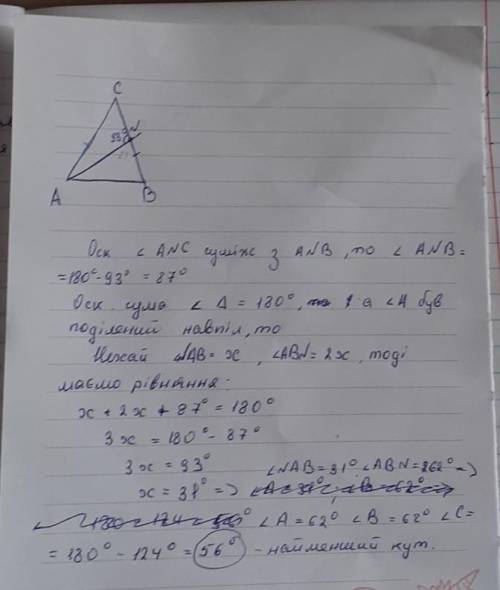 C
93° N
87
A
B
Оск ∠ANC суміж з ANB, то ∠ANB=
=180°-93° = 87°
Оск. сума ∠ Δ = 180°, а ∠A був
поділений навпіл, то
Нехай ∠NAB= x , ∠ABN= 2x , тоді
маємо рівняння:
x + 2x + 87° = 180°
3x = 180° - 87°
3x = 93°
∠NAB=31° ∠ABN=262° =>
x = 31° =>
∠A=62° ∠B=62° ∠C=
= 180° - 124° = 56° - найменший кут.